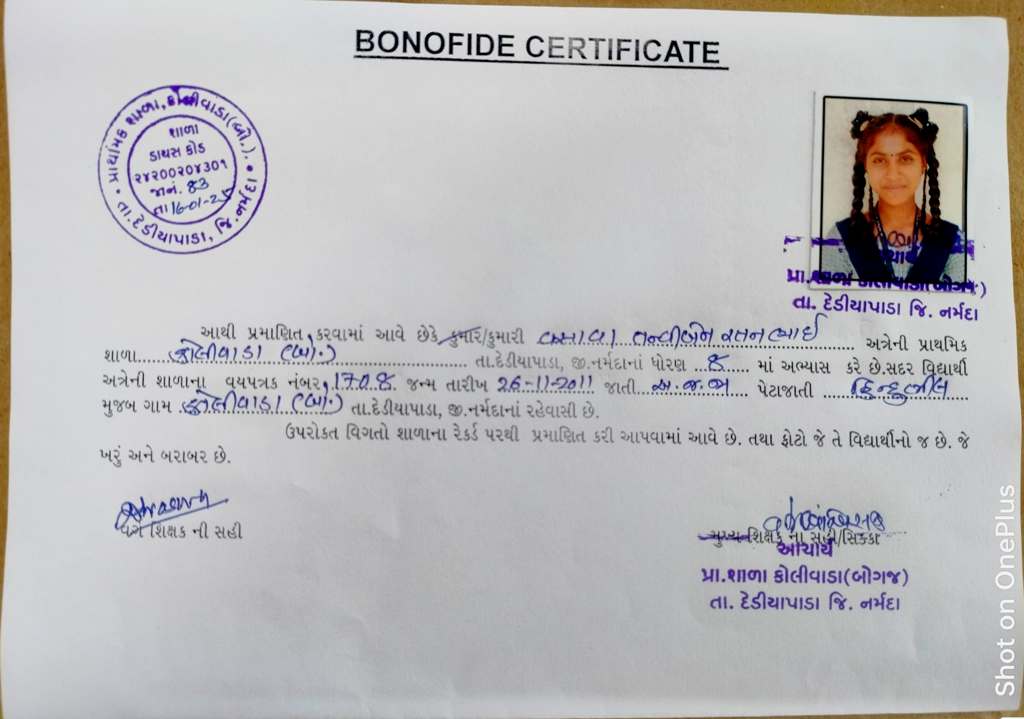 BONOFIDE CERTIFICATE
પ્રાથમિક શાળા, કોલીવાડા(બો.).
તા.દેડીયાપાડા, જિ.નર્મદા
શાળા
ડાયસ કોડ
૨૪૨૦૦૨૦૪૩૦૧
જાનં. 83
તા 16-01-25
આચાર્ય
પ્રા.શાળા કોલીવાડા(બોગજ)
તા. દેડીયાપાડા જિ. નર્મદા
આથી પ્રમાણિત કરવામાં આવે છેકે કુમાર/કુમારી વસાવા તન્વીબેન રતનભાઈ અત્રેની પ્રાથમિક
શાળા કોલીવાડા (બો.) તા.દેડીયાપાડા, જી.નર્મદાનાં ધોરણ ૮ માં અભ્યાસ કરે છે.સદર વિદ્યાર્થી
અત્રેની શાળાના વયપત્રક નંબર 1708 જન્મ તારીખ 26-11-2011 જાતી અ.જ.જા પેટાજાતી હિન્દુભીલ
મુજબ ગામ કોલીવાડા (બો.) તા.દેડીયાપાડા, જી.નર્મદાનાં રહેવાસી છે.
ઉપરોકત વિગતો શાળાના રેકર્ડ પરથી પ્રમાણિત કરી આપવામાં આવે છે. તથા ફોટો જે તે વિદ્યાર્થીનો જ છે. જે
ખરું અને બરાબર છે.
વર્ગ શિક્ષક ની સહી
મુખ્ય શિક્ષક ના સહી/સિક્કા
આચાર્ય
પ્રા.શાળા કોલીવાડા(બોગજ)
તા. દેડીયાપાડા જિ. નર્મદા
Shot on OnePlus